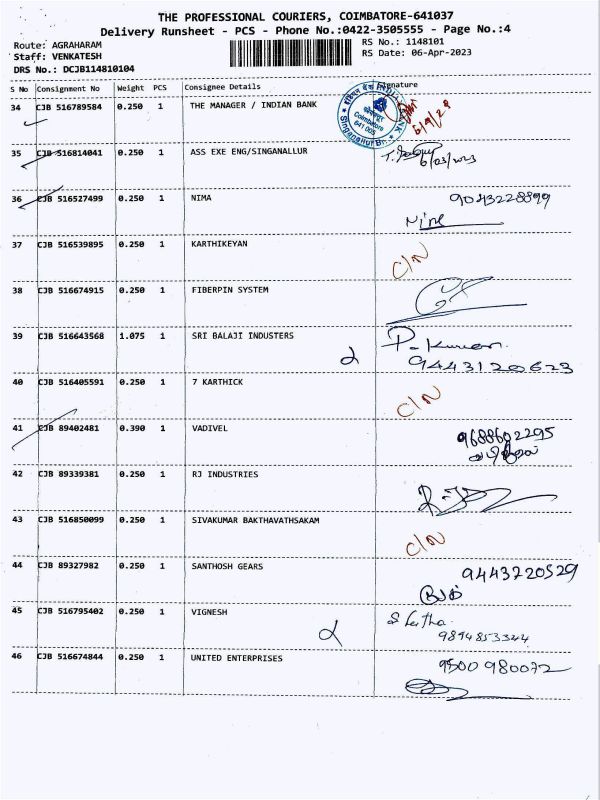 THE PROFESSIONAL COURIERS, COIMBATORE-641037
Delivery Runsheet - PCS - Phone No.:0422-3505555 - Page No.:4
Route: AGRAHARAM
Staff: VENKATESH
DRS No.: DCJB114810104
RS No.: 1148101
RS Date: 06-Apr-2023
S No Consignment No Weight PCS Consignee Details Signature
34 CJB 516789584 0.250 1 THE MANAGER / INDIAN BANK
Coimbatore
641 005
Singanallur Br.
35 CJB 516814041 0.250 1 ASS EXE ENG/SINGANALLUR
36 CJB 516527499 0.250 1 NIMA 9043228899
37 CJB 516539895 0.250 1 KARTHIKEYAN C/N
38 CJB 516674915 0.250 1 FIBERPIN SYSTEM
39 CJB 516643568 1.075 1 SRI BALAJI INDUSTERS
9443120623
40 CJB 516405591 0.250 1 7 KARTHICK C/N
41 CJB 89402481 0.390 1 VADIVEL 9688602295
42 CJB 89339381 0.250 1 RJ INDUSTRIES
43 CJB 516850099 0.250 1 SIVAKUMAR BAKTHAVATHSAKAM C/N
44 CJB 89327982 0.250 1 SANTHOSH GEARS 9443220529
45 CJB 516795402 0.250 1 VIGNESH S Latha
9894853344
46 CJB 516674844 0.250 1 UNITED ENTERPRISES 9500 980072